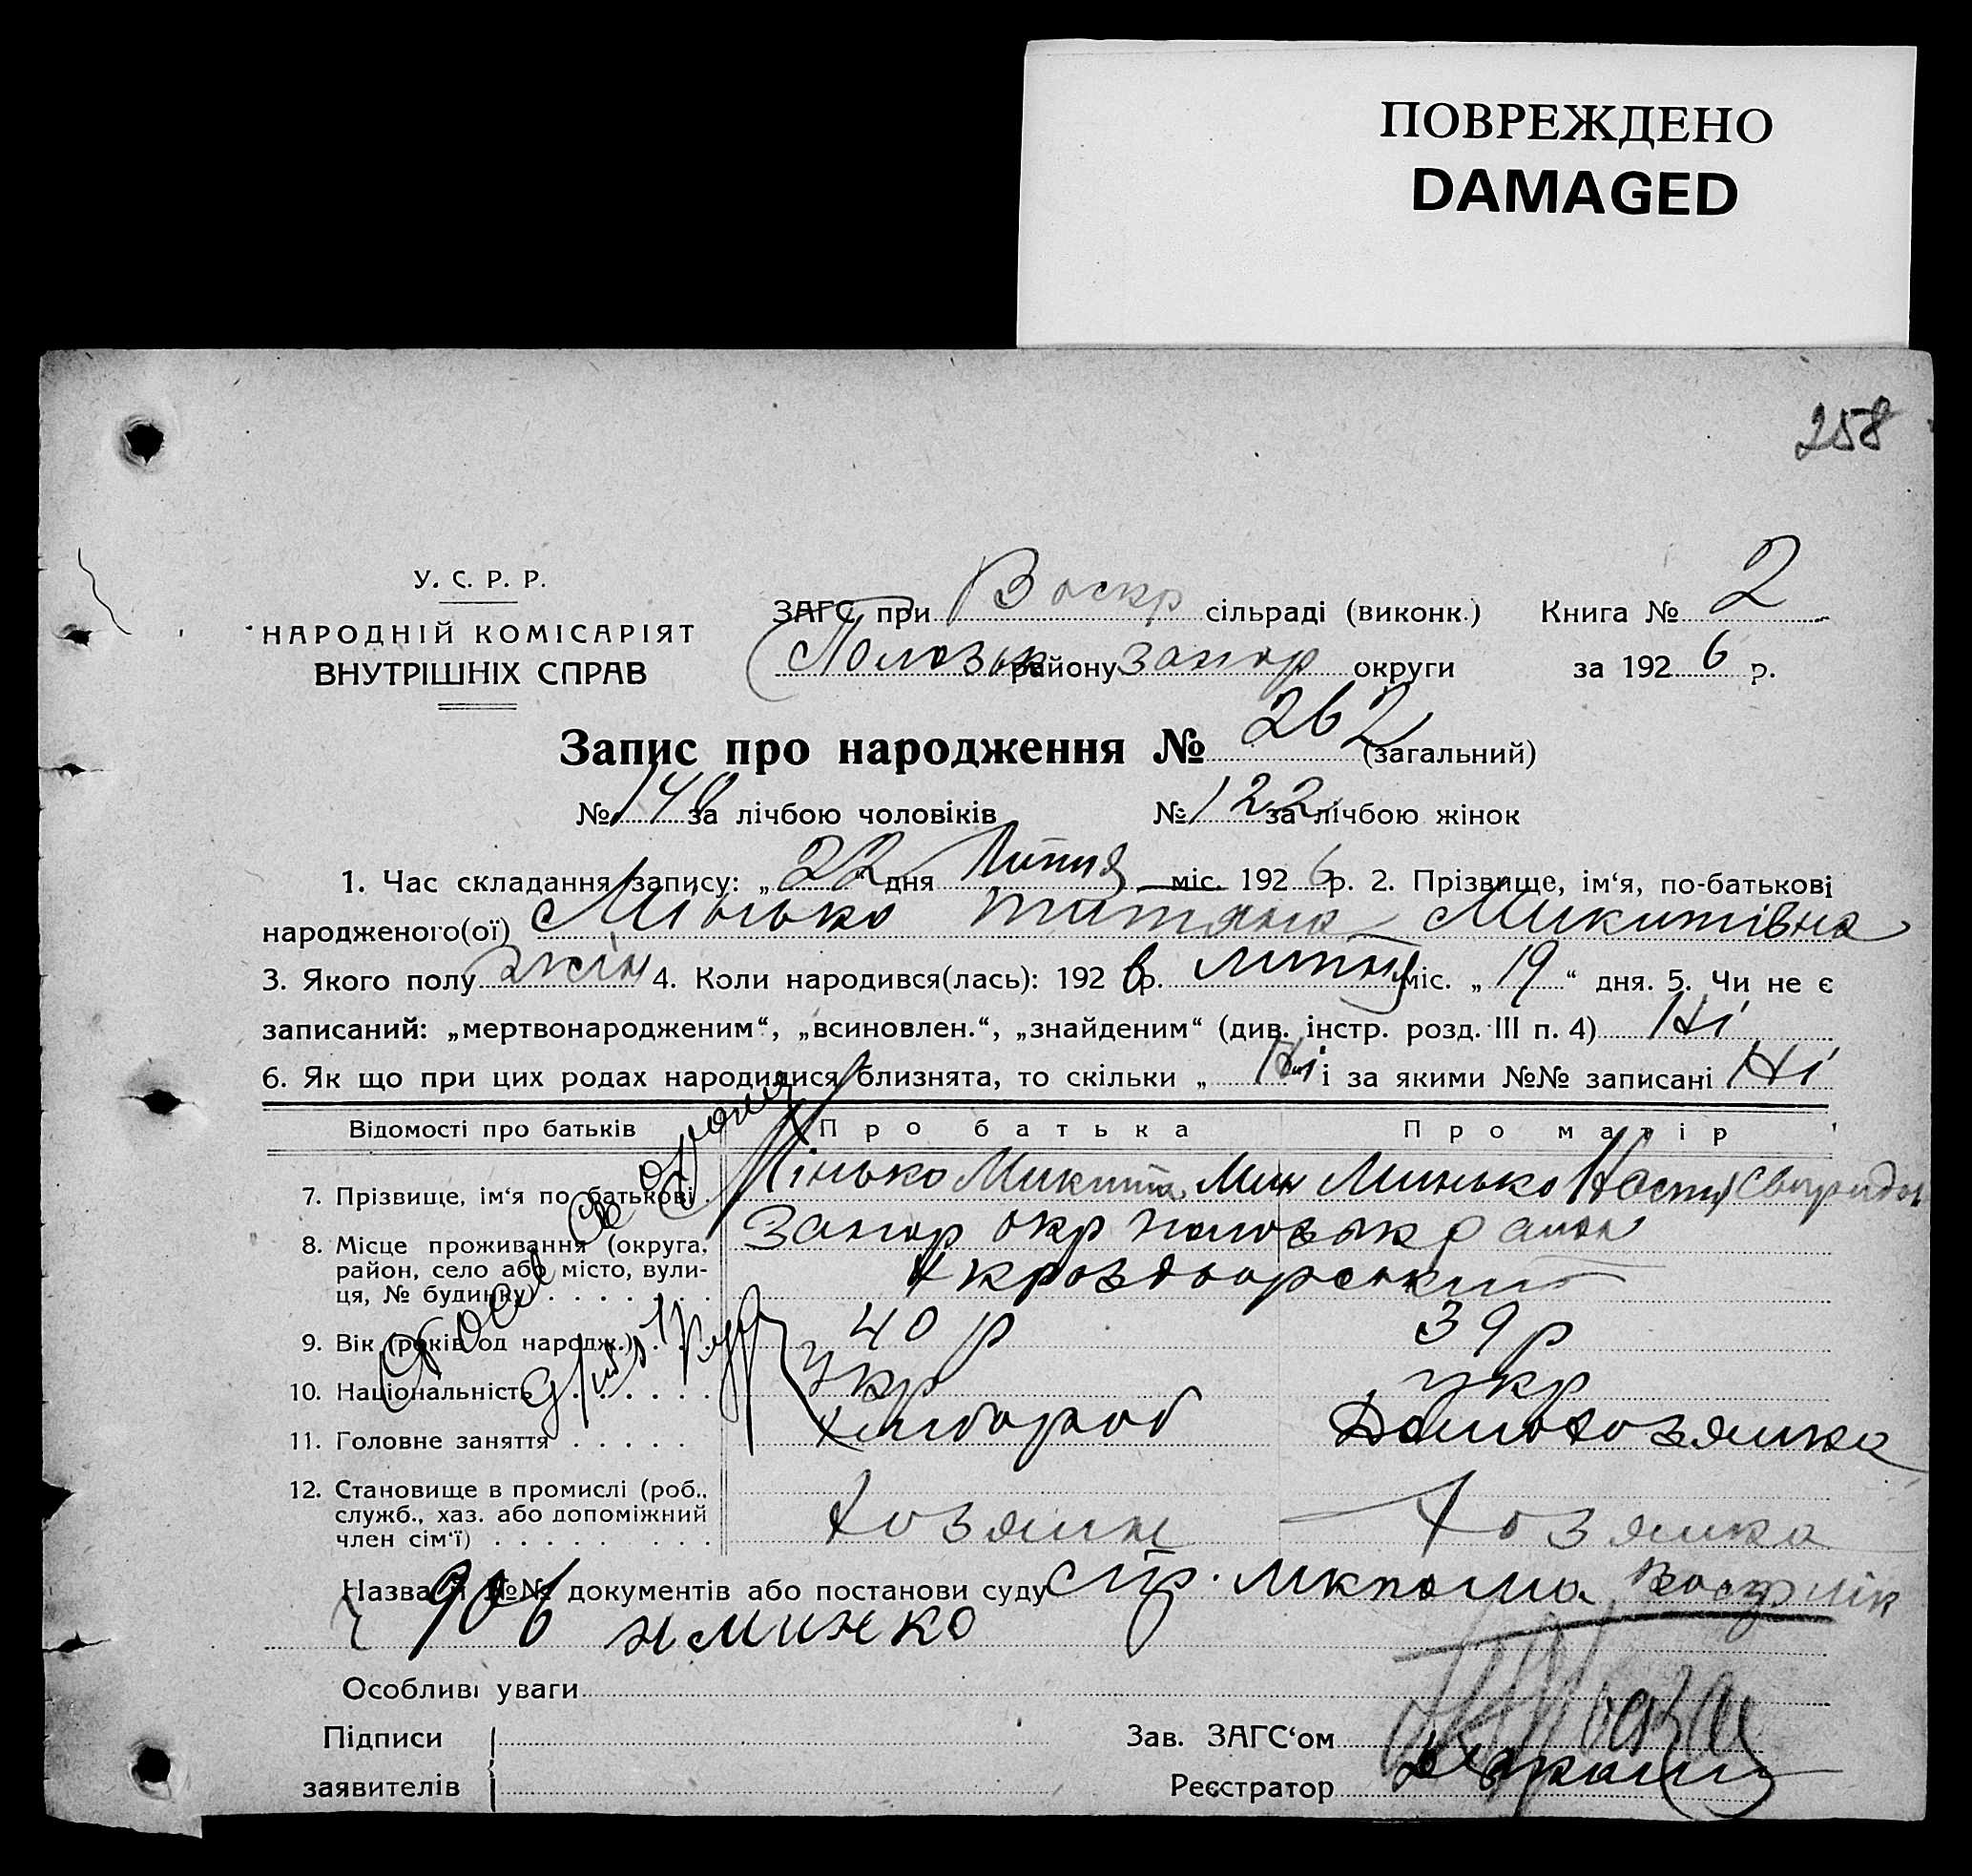 ПОВРЕЖДЕНО
DAMAGED
258
У. С. Р. Р.
НАРОДНІЙ КОМІСАРІЯТ
ВНУТРІШНІХ СПРАВ
ЗАГС при Воскр сільраді (виконк.) Книга № 2
Полозьк району Запор округи за 1926 р.
Запис про народження № 262 (загальний)
№ 140 за лічбою чоловіків № 122 за лічбою жінок
1. Час складання запису: „ 22 “ дня Липня міс. 1926 р. 2. Прізвище, ім‘я, по-батькові
народженого(ої) Мінько Титяна Микитівна
3. Якого полу жін 4. Коли народився(лась): 1926 р. липня міс. „ 19 “ дня. 5. Чи не є
записаний: „мертвонародженим“, „всиновлен.“, „знайденим“ (див. інстр. розд. III п. 4) Ні
6. Як що при цих родах народилися близнята, то скільки „ Ні і за якими №№ записані Ні
Відомості про батьків Про батька Про матір
7. Прізвище, ім‘я по батькові Мінько Микита Мин Минько Настя Свиридов
8. Місце проживання (округа, район, село або місто, вулиця, № будинку) Запор окр Пологськ район
9. Вік (років од народж.) 40 р 39 р
10. Національність укр укр
11. Головне заняття хлібороб Домохозяйка
12. Становище в промислі (роб., служб., хаз. або допоміжний член сім‘ї) хозяин хозяйка
Назва й №№ документів або постанови суду
906 Минко
Особливі уваги
Підписи
заявителів
Зав. ЗАГС‘ом
Реєстратор